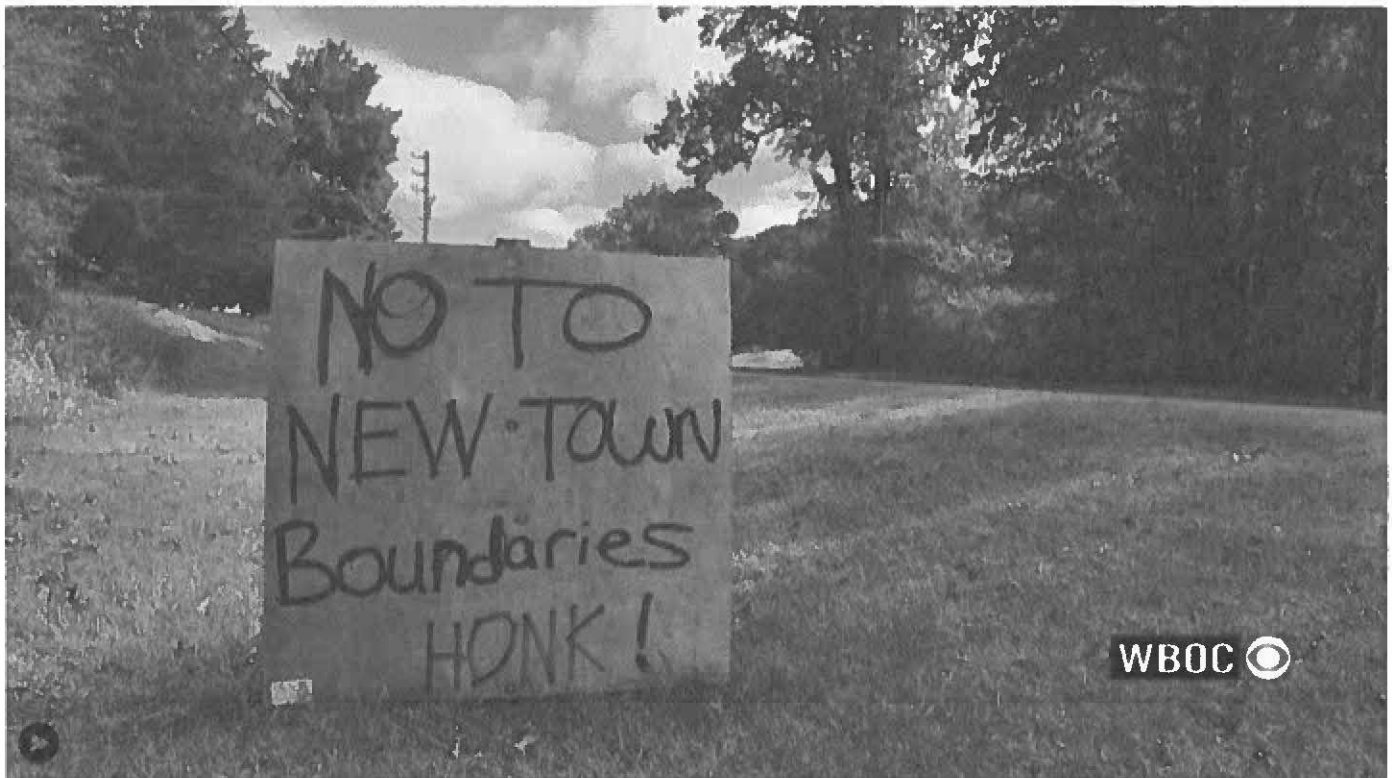 NO TO
NEW TOWN
Boundaries
HONK!
WBOC